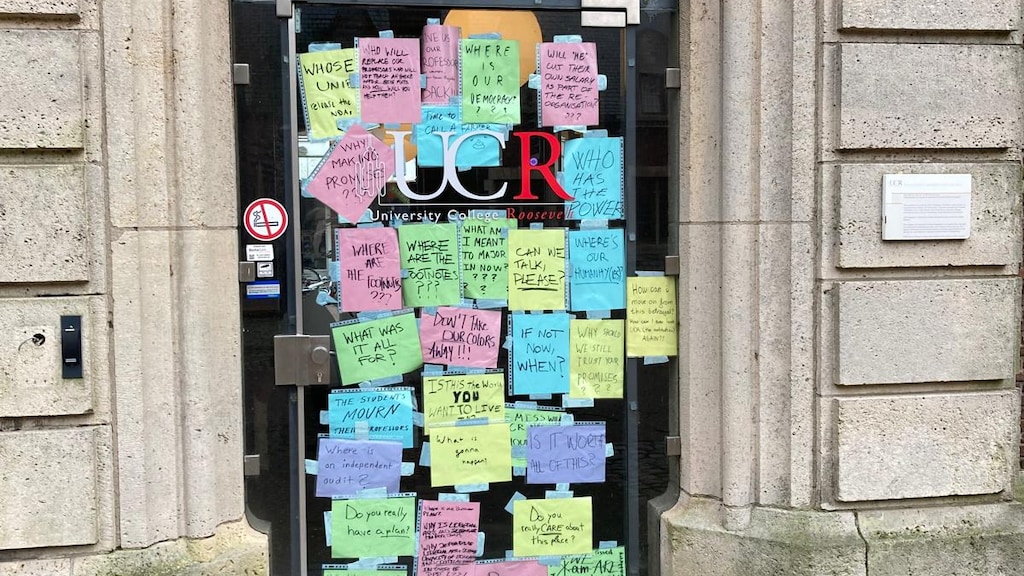 WHOSE
UNI
release the
NDA!
WHO WILL
REPLACE OUR
PROFESSORS WHO WILL
NOT TEACH ANYMORE
AND HOW WILL YOU
OUR
PROFESSOR
BACK!!
WHERE
IS
OUR
DEMOCRACY
? ? ?
WILL "HE"
CUT THEIR
OWN SALARY
AS PART OF
THE RE-
ORGANISATION?
???
TIME TO
CALL A
WHY
MAKING
PROMISE
??
UCR
University College Roosevelt
WHO
HAS
THE
POWER
WHERE
ARE
THE FOOTNOTES
???
WHERE
ARE THE
FOOTNOTES
???
WHAT AM
I MEANT
TO MAJOR
IN NOW?
? ? ?
?
CAN WE
TALK,
PLEASE?
WHERE'S
OUR
HUMANITY(IES)?
How can I
move on from
this betrayal?
AGAIN??
WHAT WAS
IT ALL
FOR?
DON'T TAKE
OUR COLORS
AWAY!!!
IF NOT
NOW,
WHEN?
WHY SHOULD
WE STILL
TRUST YOUR
PROMISES
? ? ?
THE STUDENTS
MOURN
THEIR PROFESSORS
IS THIS the World
YOU
WANT TO LIVE
MESS
Where is
an independent
audit?
What is
gonna
happen?
IS IT WORTH
ALL OF THIS?
Do you really
have a plan?
PLAN?
WHY IS
Do you
really CARE about
this place?
I am
UCR